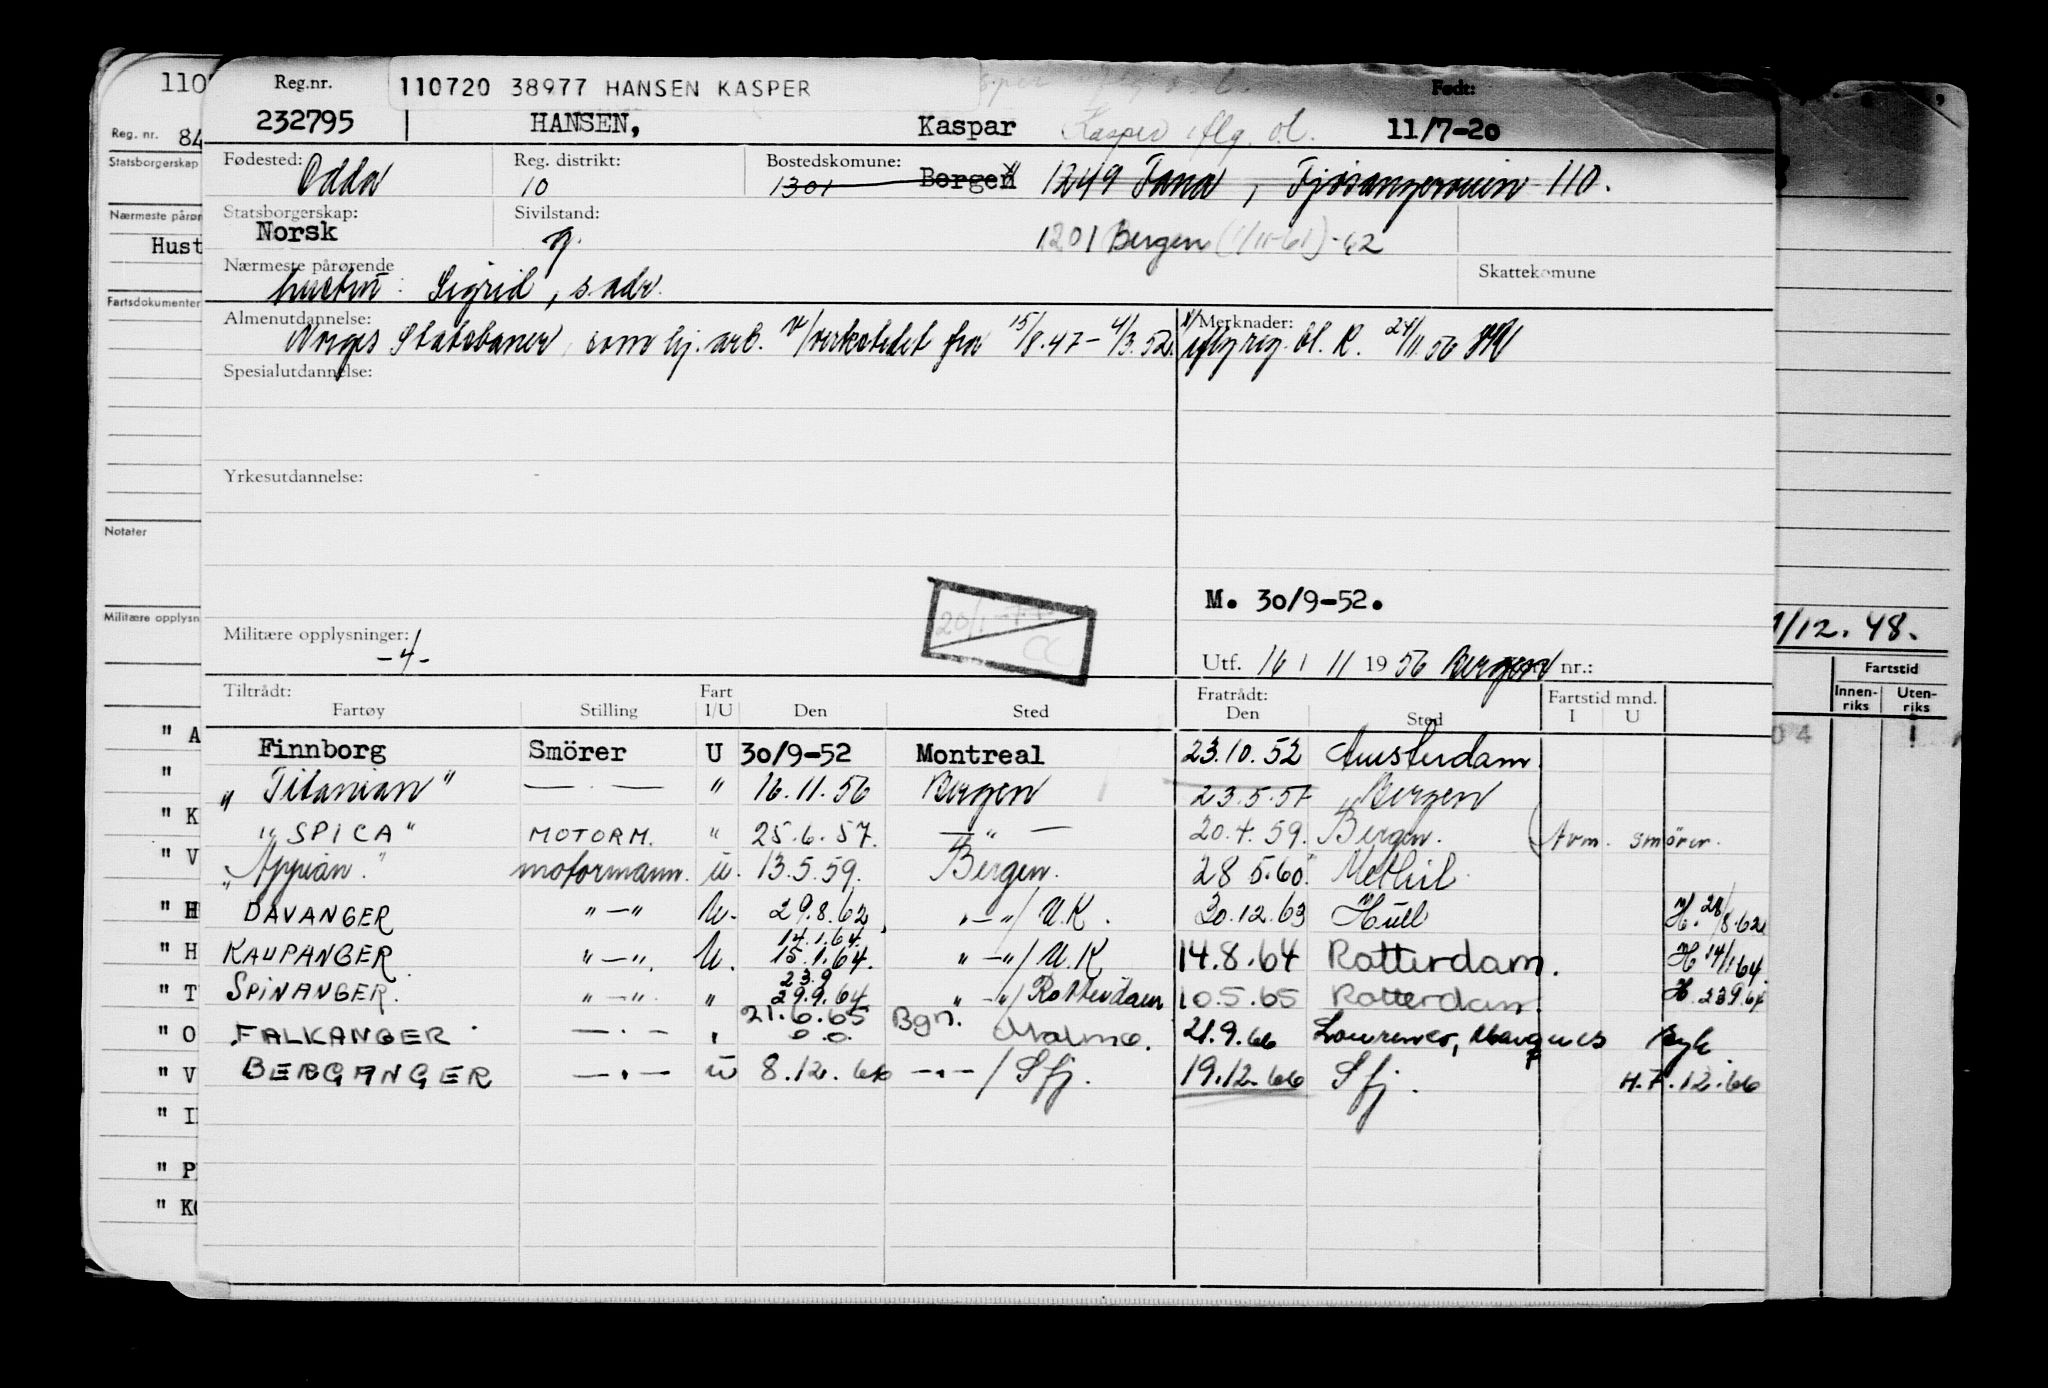 110
Reg.nr. 110720 38977 HANSEN KASPER Født:
232795 HANSEN, Kaspar Kasper iflg. ol. 11/7-20
Reg. nr. 84
Fødested: Odda Reg. distrikt: 10 Bostedskomune: 1301 Bergen 1249 Fana, Fjøsangerveien 110.
Statsborgerskap
Statsborgerskap: Norsk Sivilstand: g. 1201 Bergen (1/11-61)-62
Nærmeste pårør
Hust
Nærmeste pårørende hustru: Sigrid, s. adr. Skattekomune
Fartsdokumenter
Almenutdannelse: Norges Statsbaner, som hj. arb. v/verkstedet fra 15/8.47-4/3.52. Merknader: R. 24/11.56
Spesialutdannelse:
Yrkesutdannelse:
Notater
M. 30/9-52.
Militære opplysn
Militære opplysninger: -4- 20/1-77
1/12.48.
Utf. 16/11 1956 Bergen nr.:
Tiltrådt: Fart Fratrådt: Fartstid mnd. Fartstid
Fartøy Stilling I/U Den Sted Den Sted I U Innen-riks Uten-riks
Finnborg Smörer U 30/9-52 Montreal 23.10.52 Amsterdam
"Titanian" — . — " 16.11.56 Bergen 23.5.57 Bergen
"SPICA" MOTORM. " 25.6.57. — " — 20.4.59. Bergen. Avm. smörer.
"Appian". motormann. u. 13.5.59. Bergen. 28 5.60. Methil
DAVANGER "—" U. 29.8.62 "—"/U.K. 30.12.63 Hull H. 28/8.62
KAUPANGER "—" U. 14.1.64. 15.1.64. "—"/U.K 14.8.64 Rotterdam. H 14/1 64.
SPINANGER. "—" " 23.9 29.9.64 "—"/Rotterdam 10.5.65 Rotterdam H. 239.64
FALKANGER — . — " 21.6.65 Bgn. Malmø. 21.9.66 Lourenco, Marques syk
BERGANGER — . — u 8.12.66 — . — / Sfj. 19.12.66 Sfj. H.7.12.66
" A
"
" K
" V
" H
" H
" T
" O
" V
" I
" P
" K